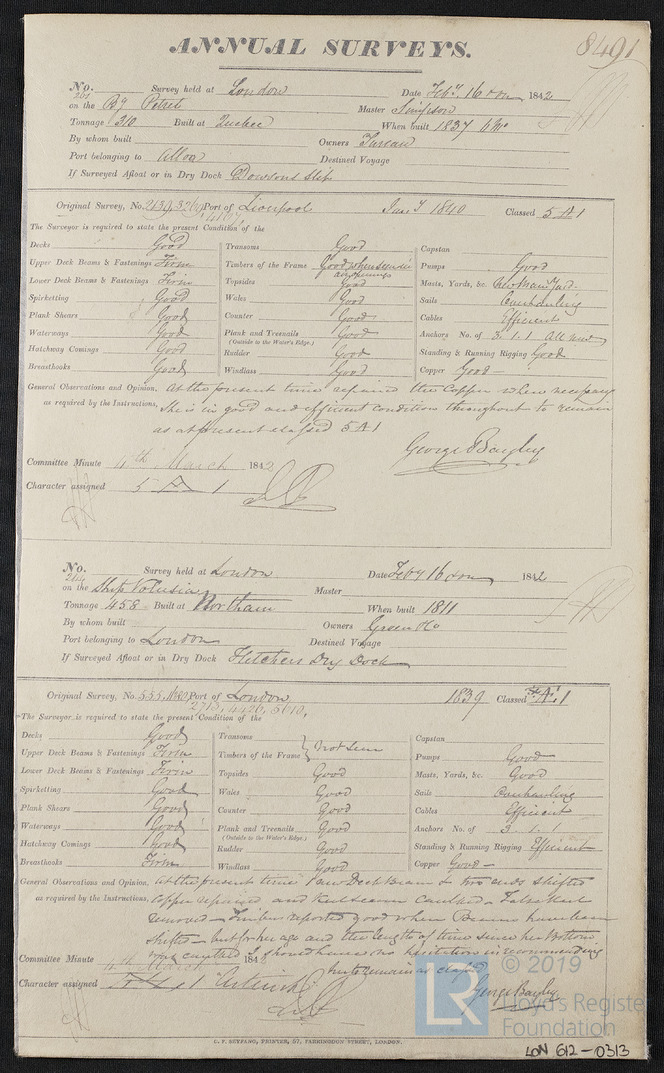 8491
ANNUAL SURVEYS.
No. 261 Survey held at London Date Feby. 16 1842
on the Bg Master Simpson
Tonnage 310 Built at Quebec When built 1837
By whom built Owners
Port belonging to Alloa Destined Voyage
If Surveyed Afloat or in Dry Dock Dowsons Slip
Original Survey, No. Port of Liverpool 1840 Classed 5 A 1
The Surveyor is required to state the present Condition of the
Decks Good Transoms Good Capstan
Upper Deck Beams & Fastenings Firm Timbers of the Frame Good where seen in Pumps Good
air openings
Lower Deck Beams & Fastenings Firm Topsides Good Masts, Yards, &c. New Main Yard.
Spirketting Good Wales Good Sails Overhauling
Plank Shears Good Counter Good Cables Efficient
Waterways Good Plank and Treenails Good Anchors No. of 3. 1. 1 All new
(Outside to the Water's Edge.)
Hatchway Comings Good Rudder Good Standing & Running Rigging Good
Breasthooks Good Windlass Good Copper Good
General Observations and Opinion, At the present time repaired the Copper where necessary
as required by the Instructions, She is in good and efficient condition throughout to remain
as at present classed 5 A 1
George Bayley
Committee Minute 4th March 1842
Character assigned 5 A 1
No. Survey held at London Date Feby 16 1842
on the Ship Volusia Master
Tonnage 458 Built at Northam When built 1811
By whom built Owners Green & Co
Port belonging to London Destined Voyage
If Surveyed Afloat or in Dry Dock Fletchers Dry Dock
Original Survey, No. 555 Port of London 1839 Classed Æ 1
The Surveyor is required to state the present Condition of the
Decks Good Transoms Capstan
Upper Deck Beams & Fastenings Firm Timbers of the Frame Not seen Pumps Good
Lower Deck Beams & Fastenings Firm Topsides Good Masts, Yards, &c. Good
Spirketting Good Wales Good Sails Overhauling
Plank Shears Good Counter Good Cables Efficient
Waterways Good Plank and Treenails Good Anchors No. of 3. 1. 1
(Outside to the Water's Edge.)
Hatchway Comings Good Rudder Good Standing & Running Rigging Efficient
Breasthooks Firm Windlass Good Copper Good
General Observations and Opinion, At the present time 1 new Deck Beam & two ends shifted
as required by the Instructions, Copper repaired and Keel seam caulked & False Keel
removed - Timbers reported good where Beams have been
shifted - but for her age and the length of time since her Bottom
was caulked I should have no hesitation in recommending
her to remain as classed
George Bayley
Committee Minute 4th March 1842
Character assigned Æ 1
C. F. SEYFANG, PRINTER, 57, FARRINGDON STREET, LONDON.
© 2019
LR Lloyd's Register
Foundation
LON 612-0313